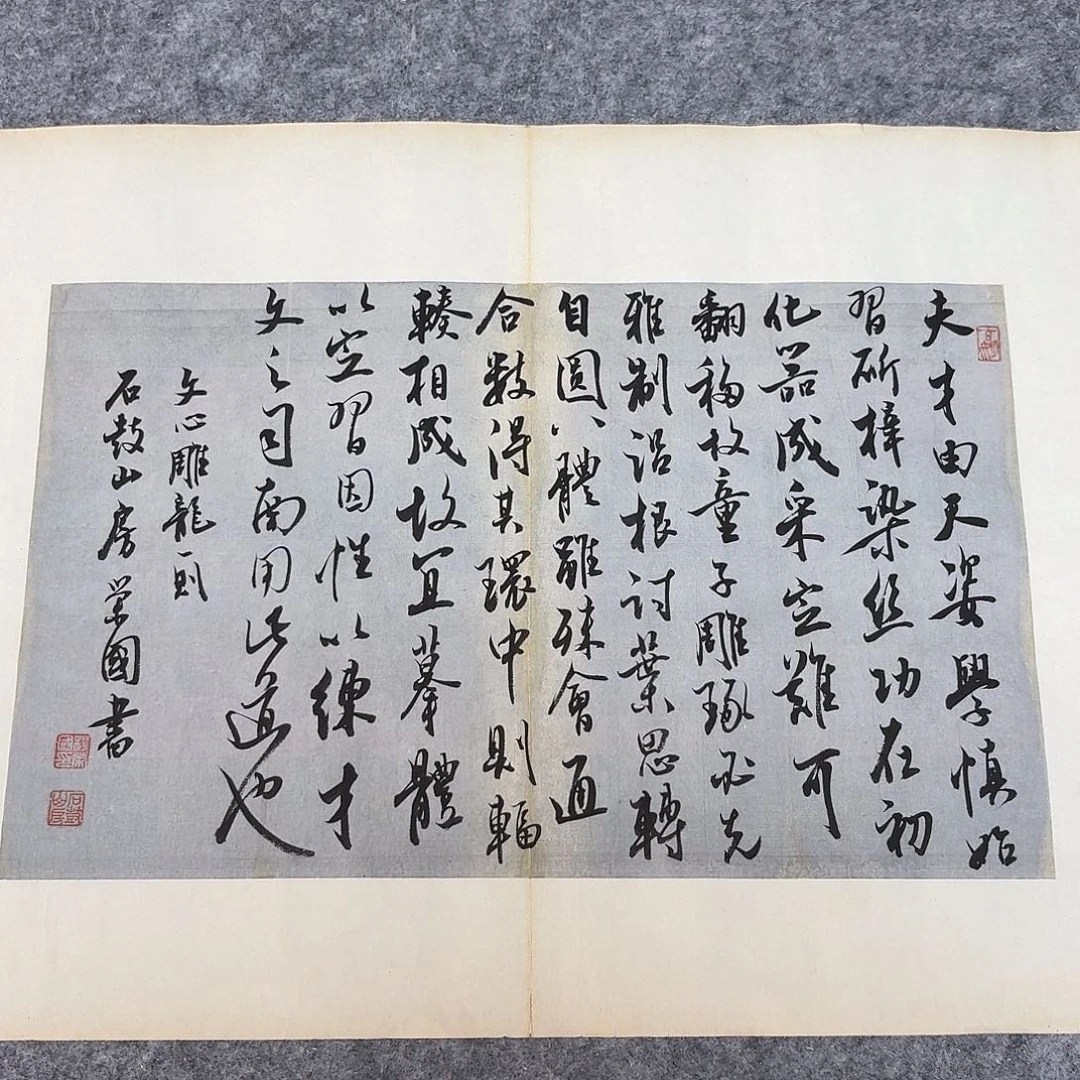 夫才由天姿學慎始
習斫梓染丝功在初
化器成采定難可
翻移故童子雕琢必先
雅制沿根討葉思轉
自圓八體雖殊會通
合數得其環中則輻
輳相成故宜摹體
以定習因性以練才
文之司南用此道也
文心雕龍一則
石鼓山房荣國書